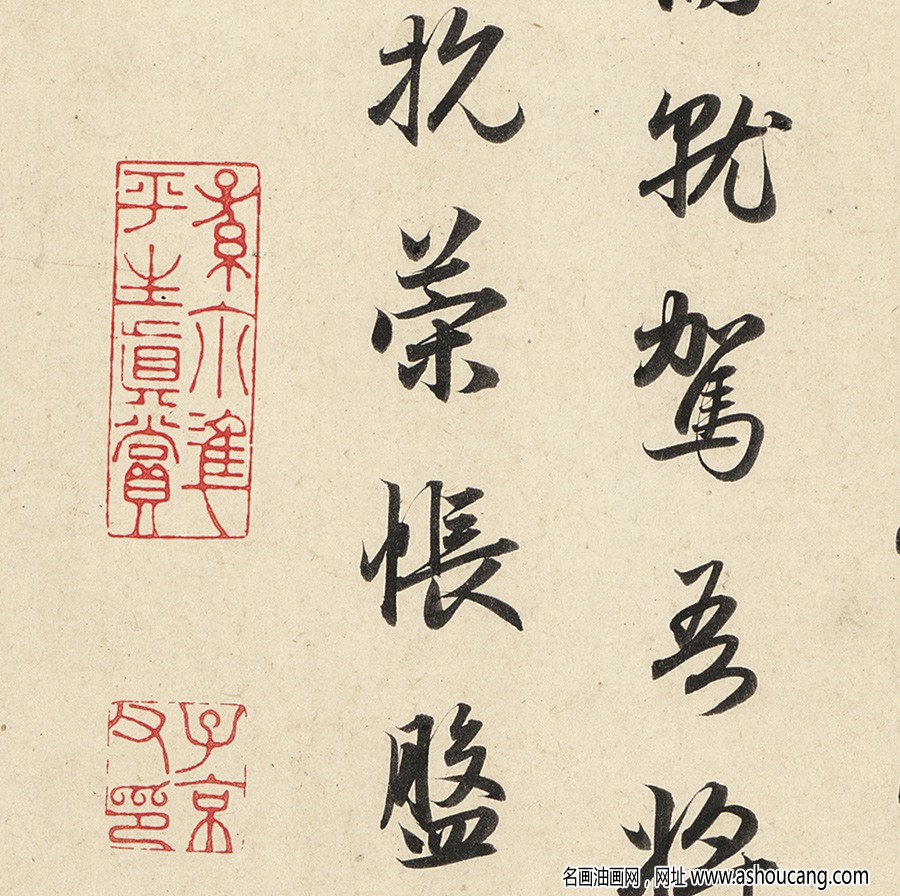 就駕吾將
抗策悵盤
平生真賞
子京父印
名画油画网，网址 www.ashoucang.com